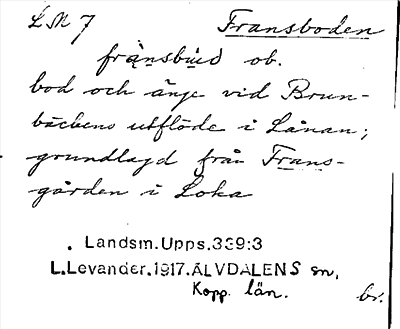 LM 7 Fransboden
fra̱nsbu̱ıd ob.
bod och änge vid Brun-
bäckens utflöde i Lånan;
grundlagd från Frans-
gården i Loka
. Landsm.Upps.339:3
L.Levander.1917.ÄLVDALENS sn,
Kopp. län.
br.